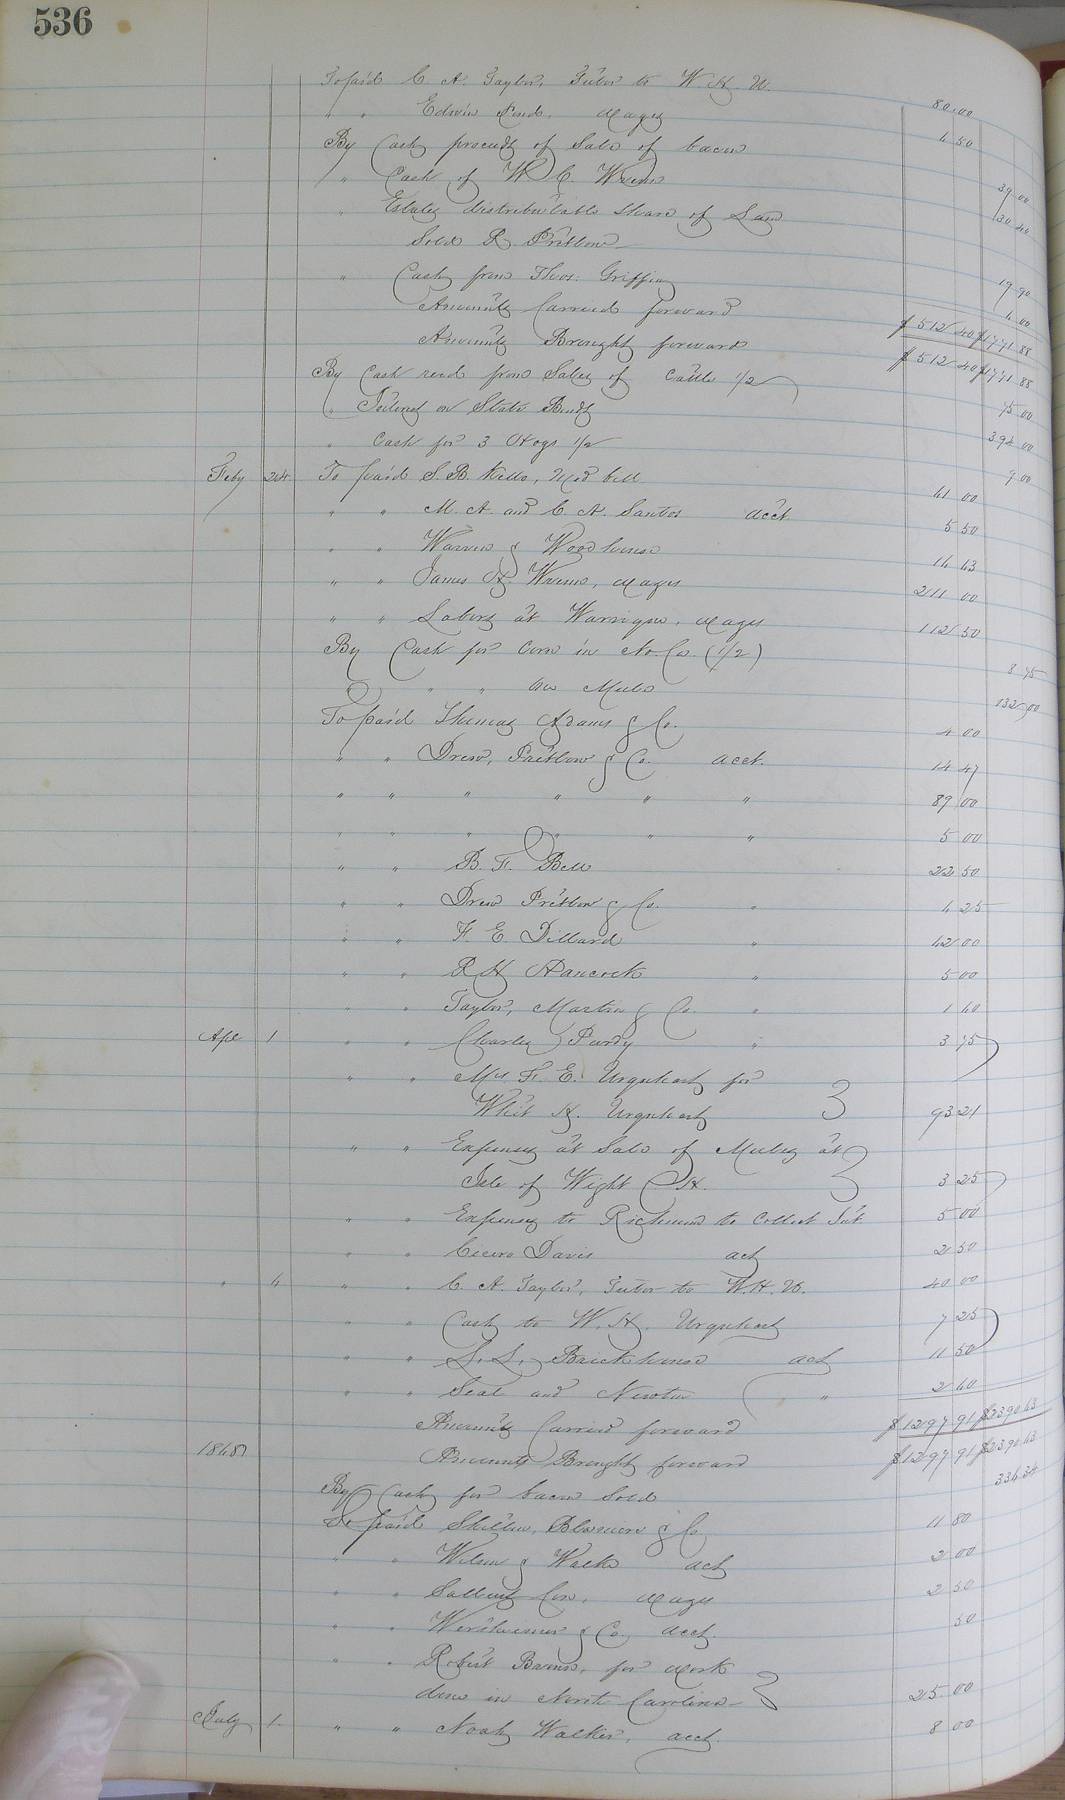 536
To paid C. A. Taylor, Tutor to W. H. U. 80.00
" " Edwin wages 4 50
By Cash proceeds of Sale of bacon 39.00
" Cash of W. C. Wrenn 30 40
" Estates distributable share of Land
Sold R Pretlow 19 90
" Cash from Thos. Griffin 4 00
Amounts Carried forward $512 40 $1771 88
Amounts Brought forward $512 40 $1771 88
By Cash recd from Sales of Cattle 1/2 75 00
" Interest on State Bonds 394 00
" Cash for 3 Hogs 1/2 9 00
Feby 24 To paid S. B. Kello, Med bill 41 00
" " M. A. and C. A. Santos acct. 5 50
" " Warren & Woodhouse 14 43
" " James H. Wrenn, wages 211 00
" " Labors at Warrique, wages 112 50
By Cash for Corn in No. Co. (1/2) 8 75
" " " two Mules 132 00
To paid Thomas Adams & Co. 4 00
" " Drew, Pretlow & Co. acct. 14 47
" " " " " " 89 00
" " " " " " 5 00
" " B. F. Bell 22 50
" " Drew Pretlow & Co. " 4 25
" " F. E. Dillard " 42 00
" " R H Hancock " 5 00
" " Taylor, Martin & Co. " 1 40
Apl 1 " " Charles Purdy " 3 75
" " Mrs F. E. Urquhart for
Whit H. Urquhart 93 21
" " Expenses at Sale of Mules at
Isle of Wight C. H. 3 25
" " Expenses to Richmond to Collect Int 5 00
" " Cicero Davis act 2 50
" 4 " " C. A. Taylor, Tutor to W. H. U. 40 00
" " Cash to W. H. Urquhart 7 25
" " S. S. Brickhouse act 11 50
" " Seal and Newton " 2 40
Amounts Carried forward $1297.91 $2390.43
1868 Amounts Brought forward $1297.91 $2390.43
By Cash for bacon sold 334 34
To paid & Co. 11 80
" " Wilson & Walke act 2 00
" " Cox, wages 2 50
" " Wertheimer & Co. acct. 50
" " Robert for work
done in North Carolina 25.00
July 1. " " Noah Walker, acct. 8 00